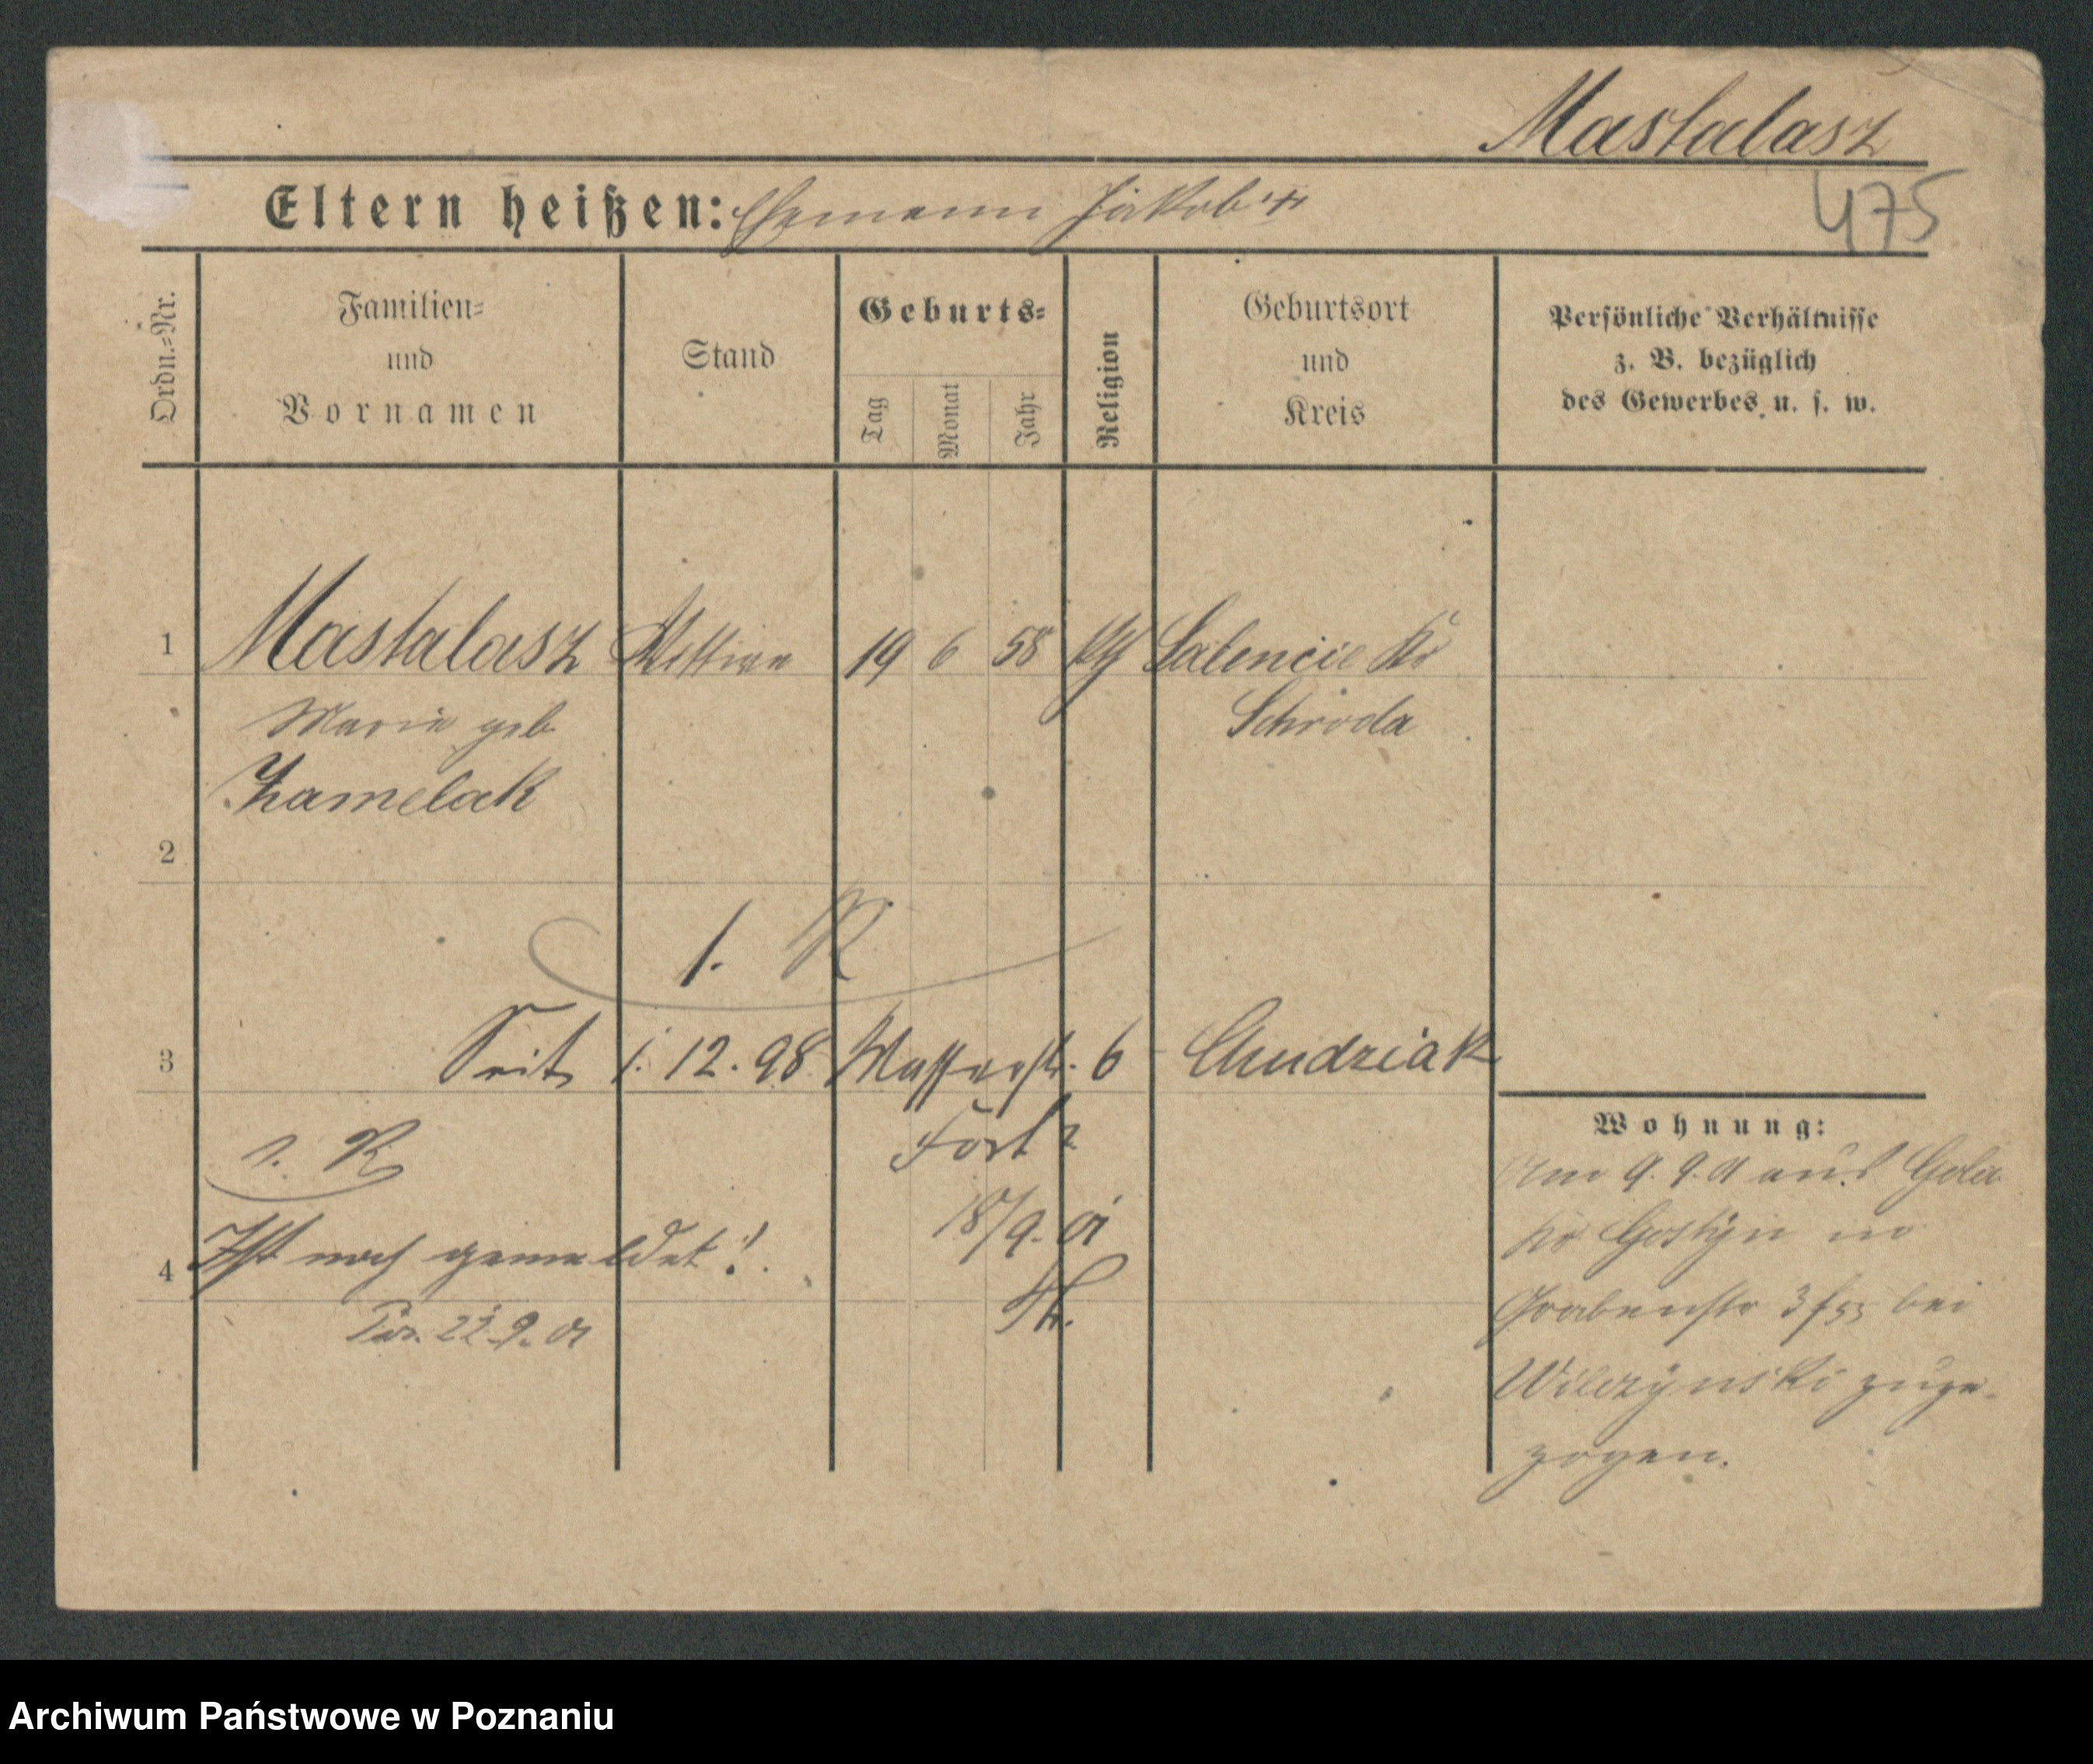 Mastalasz
475
Eltern heißen: Ehemann Jakob
Ordn.-Nr.
Familien-
und
Vornamen
Stand
Geburts-
Tag
Monat
Jahr
Religion
Geburtsort
und
Kreis
Persönliche Verhältnisse
z. B. bezüglich
des Gewerbes u. s. w.
1 Mastalasz 19 6 58 Kr
Marie geb
Schroda
2
1. R
3 Seit 1. 12. 98 Wasserstr. 6 Chudziak
Wohnung:
1. R
Fort?
Am 9. 9. 01 aus Gola
18/9. 01
Kr Gostyn in
4 Ist noch gemeldet!
Grabenstr 3 bei
22.9.01
Wilczynski zuge-
zogen.
Archiwum Państwowe w Poznaniu